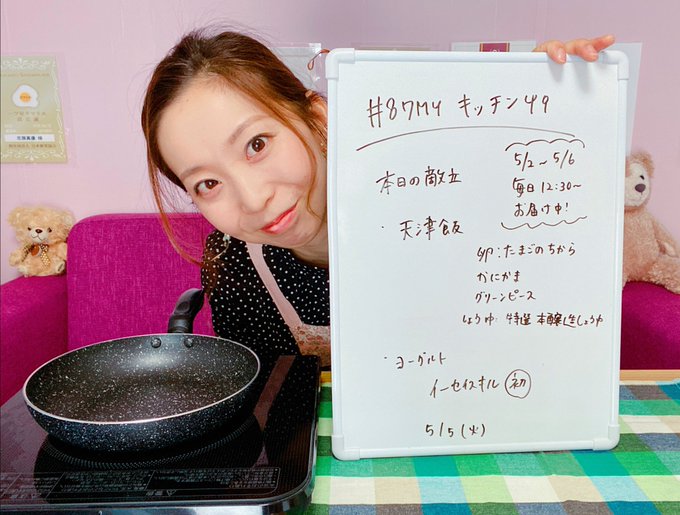 #87MY キッチン49
5/2～5/6
毎日12:30～
お届け中!
本日の献立
・天津飯
卵:たまごのちから
かにかま
グリーンピース
しょうゆ:特選 本醸造しょうゆ
・ヨーグルト
イーセイスキル 初
5/5(火)